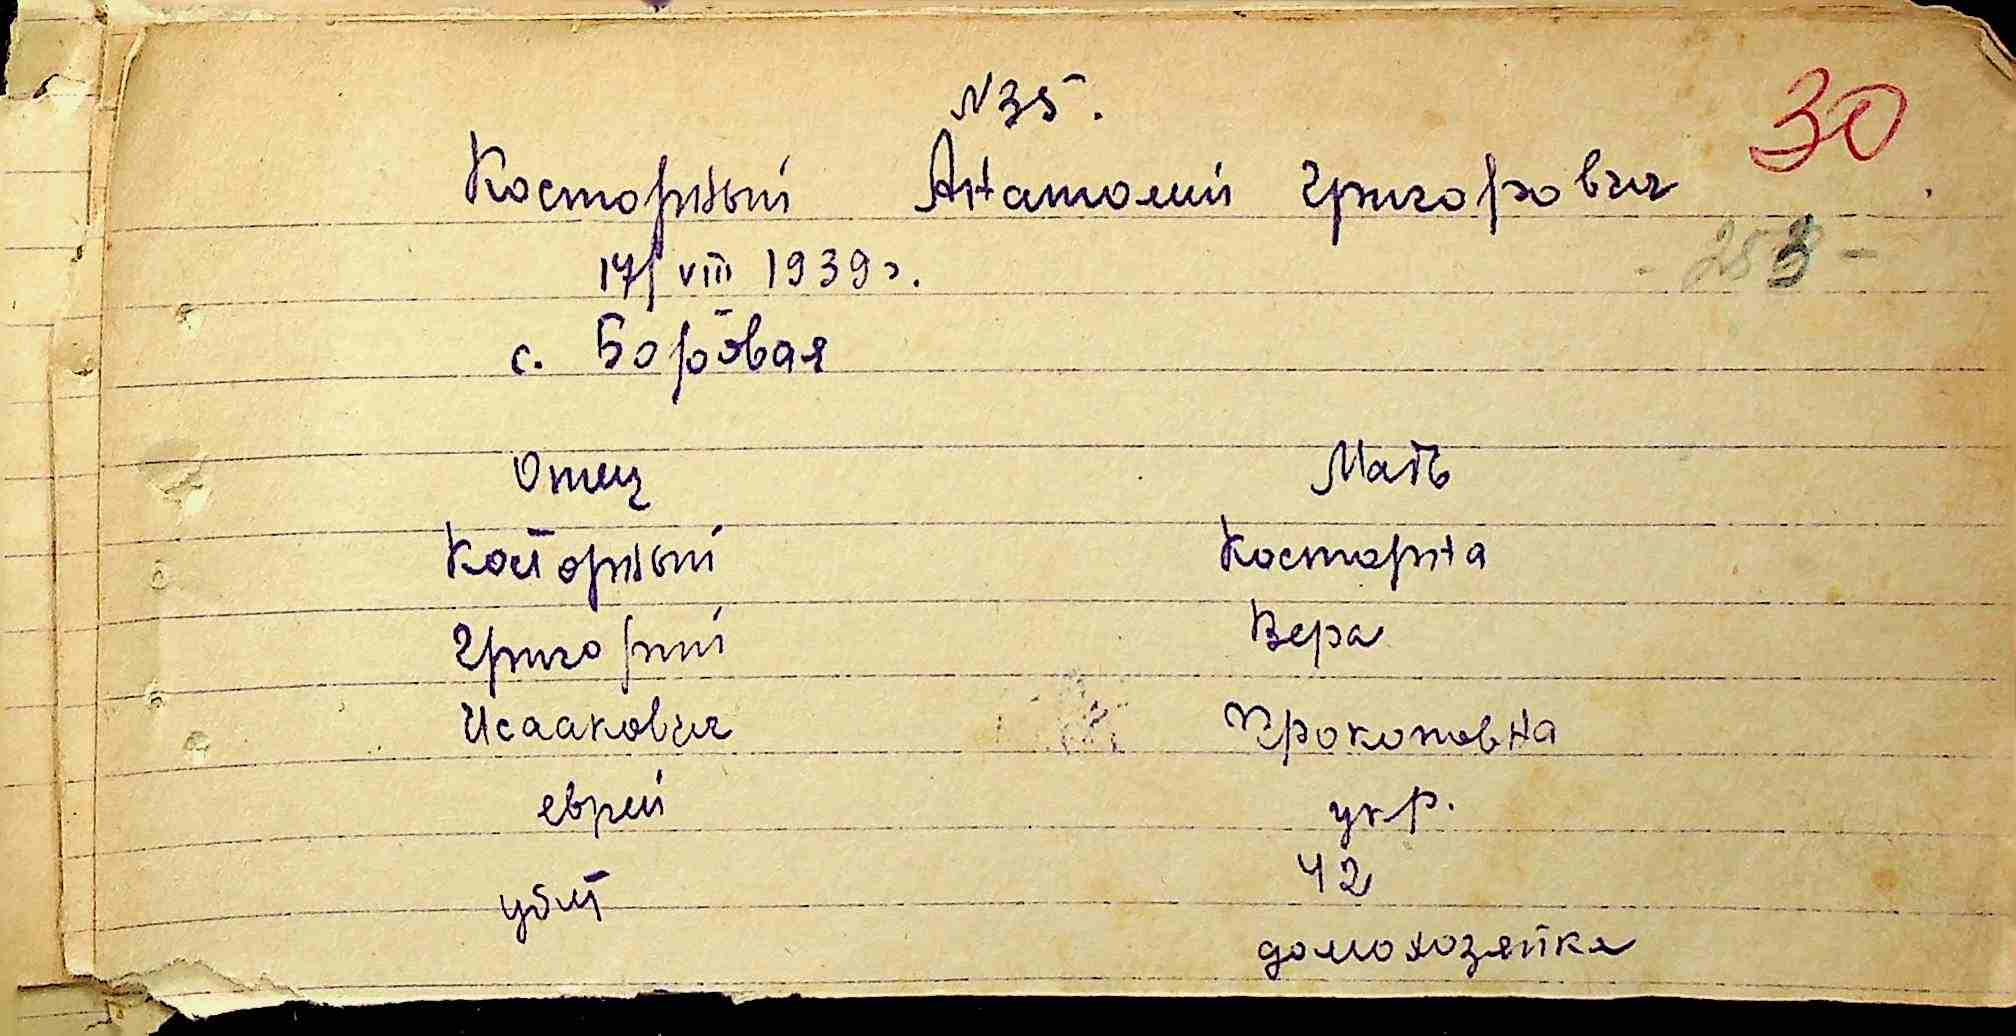 N 35.
30
Косторный Анатолий Григорович
- 253 -
17/VIII 1939 г.
с. Боровая
Отец Мать
Косторный Косторна
Григорий Вера
Исаакович Прокоповна
еврей укр.
убит 42
домохозяйка